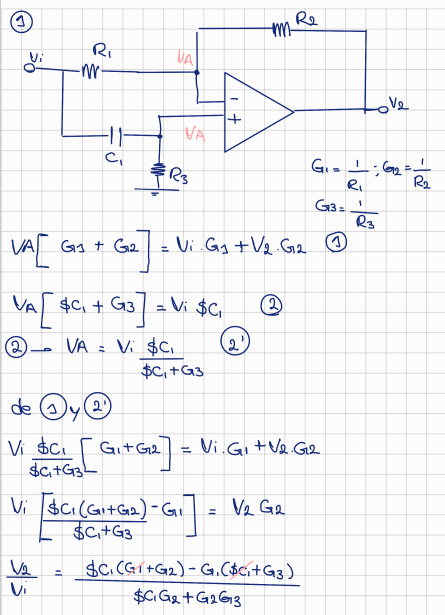 ①
Vi
R1
VA
R2
-
+
V2
VA
C1
R3
G1 = 1/R1 ; G2 = 1/R2
G3 = 1/R3
VA[ G1 + G2 ] = Vi.G1 + V2.G2 ①
VA[ $C1 + G3 ] = Vi $C1 ②
② → VA = Vi $C1/($C1+G3) ②'
de ① y ②'
Vi $C1/($C1+G3) [ G1+G2 ] = Vi.G1 + V2.G2
Vi [ ($C1(G1+G2) - G1)/($C1+G3) ] = V2 G2
V2/Vi = ($C1(G1+G2) - G1($C1+G3))/($C1G2 + G2G3)